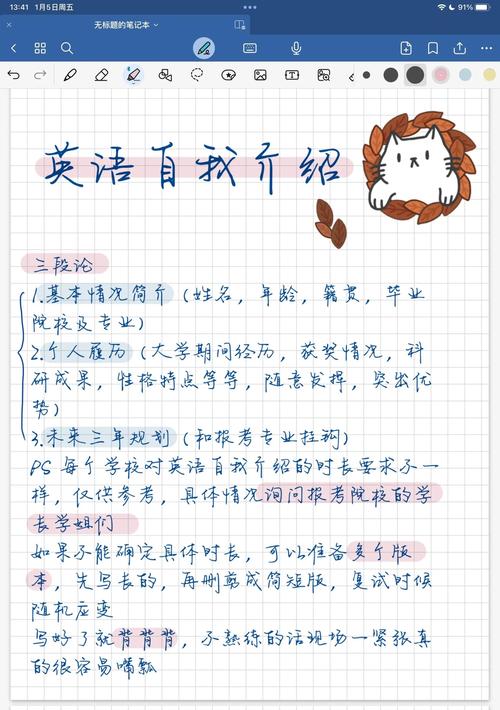 13:41 1月5日周五
91%
无标题的笔记本
英语自我介绍
三段论
1.基本情况简介（姓名，年龄，籍贯，毕业
院校及专业）
2.个人履历（大学期间经历，获奖情况，科
研成果，性格特点等等，随意发挥，突出优
势）
3.未来三年规划（和报考专业挂钩）
PS 每个学校对英语自我介绍的时长要求不一
样，仅供参考，具体情况询问报考院校的学
长学姐们
如果不能确定具体时长，可以准备多个版
本，先写长的，再删剪成简短版，复试时候
随机应变
写好了就背背背，不熟练的话现场一紧张真
的很容易嘴瓢